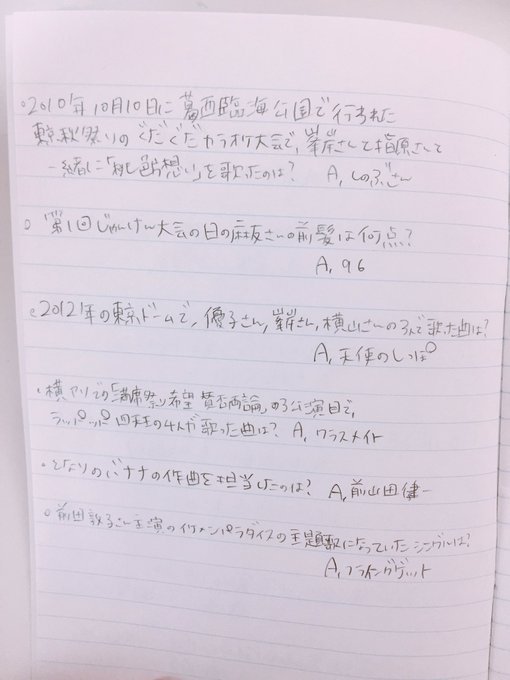 ○2010年10月10日に葛西臨海公園で行われた
東京秋祭りのぐだぐだカラオケ大会で、峯岸さんと指原さんと
一緒に「桃色片想い」を歌ったのは? A, しのぶさん
○ 第1回じゃんけん大会の日の麻友さんの前髪は何点?
A, 96
○2012年の東京ドームで、優子さん、峯岸さん、横山さんの3人で歌った曲は?
A, 天使のしっぽ
・横アリでの「満席祭り希望 賛否両論」の3公演目で、
ラッパッパ四天王の4人が歌った曲は? A, クラスメイト
・となりのバナナの作曲を担当したのは? A, 前山田健一
○前田敦子さん主演のイケメンパラダイスの主題歌になっていたシングルは?
A, フライングゲット